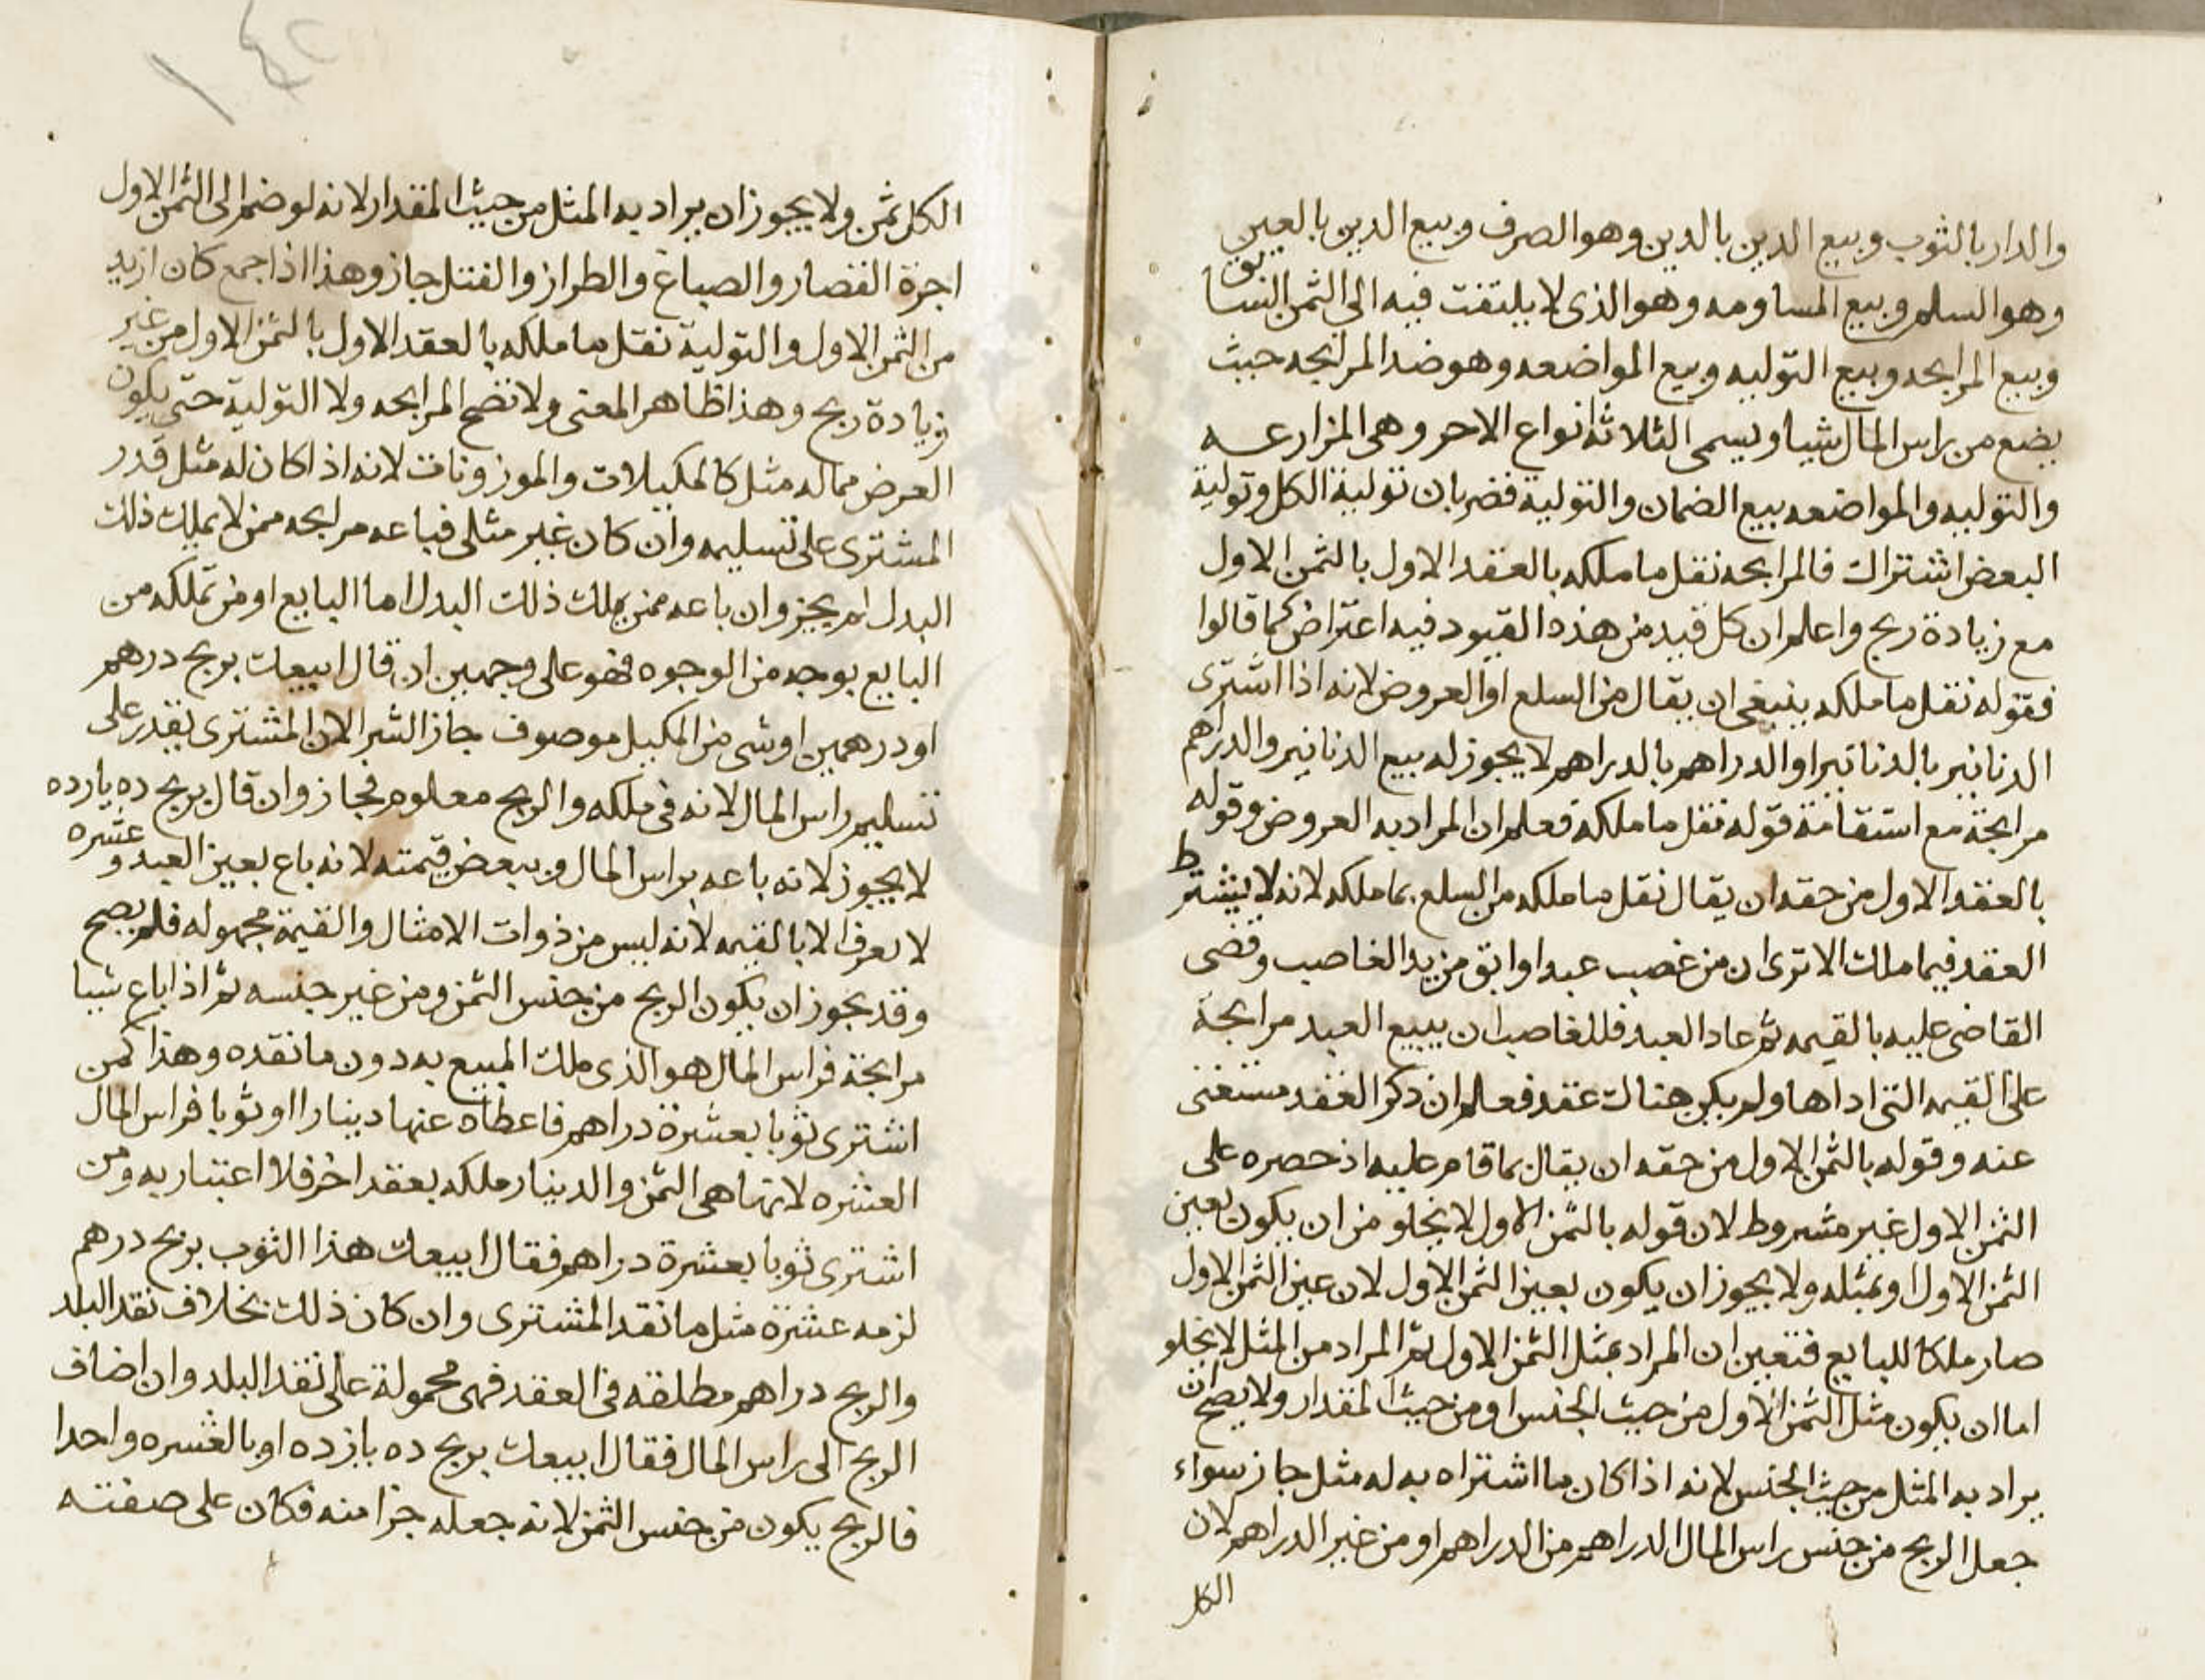 والدار بالثوب وبيع الدين بالدين وهو الصرف وبيع الدين بالعين
وهو السلم وبيع المساومه وهو الذى لا يلتفت فيه الى الثمن السابق
وبيع المرابحه وبيع التوليه وبيع المواضعه وهو ضد المرابحه حيث
يضع من راس المال شيا ويسمى الثلاثة انواع الاخر وهى المزارعه
والتوليه والمواضعه بيع الضمان والتولية فضربان تولية الكل وتولية
البعض اشتراك فالمرابحه نقل ما ملكه بالعقد الاول بالثمن الاول
مع زيادة ربح واعلم ان كل قيد من هذه القيود فيه اعتراض كما قالوا
فقوله نقل ما ملكه ينبغى ان يقال من السلع او العروض لانه اذا اشترى
الدنانير بالدنانير او الدراهم بالدراهم لا يجوز له بيع الدنانير والدراهم
مرابحة مع استقامة قوله نقل ما ملكه فعلم ان المراد به العروض وقوله
بالعقد الاول من حقه ان يقال نقل ما ملكه من السلع بما ملكه لانه لا يشترط
العقد فيما ملك الا ترى ان من غصب عبدا وابق من يد الغاصب وقضى
القاضى عليه بالقيمه ثم عاد العبد فللغاصب ان يبيع العبد مرابحة
على القيمه التى اداها ولم يكن هناك عقد فعلم ان ذكر العقد مستغنى
عنه وقوله بالثمن الاول من حقه ان يقال بما قام عليه اذ حصره على
الثمن الاول غير مشروط لان قوله بالثمن الاول لا يخلو من ان يكون بعين
الثمن الاول او بمثله ولا يجوز ان يكون بعين الثمن الاول لان عين الثمن الاول
صار ملكا للبايع فتعين ان المراد بمثل الثمن الاول ثم المراد من المثل لا يخلو
اما ان يكون مثل الثمن الاول من حيث الجنس او من حيث المقدار ولا يصح ان
يراد به المثل من حيث الجنس لانه اذا كان ما اشتراه به له مثل جاز سواء
جعل الربح من جنس راس المال الدراهم من الدراهم او من غير الدراهم لان
الكل
١٤٢
الكل ثمن ولا يجوز ان يراد به المثل من حيث المقدار لانه لو ضم الى الثمن الاول
اجرة القصار والصباغ والطراز والفتل جاز وهذا اذا جمع كان ازيد
من الثمن الاول والتولية نقل ما ملكه بالعقد الاول بالثمن الاول من غير
زيادة ربح وهذا ظاهر المعنى ولا تصح المرابحه ولا التولية حتى يكون
العرض مما له مثل كالمكيلات والموزونات لانه اذا كان له مثل قدر
المشترى على تسليمه وان كان غير مثلى فباعه مرابحه ممن لا يملك ذلك
البدل لم يجز وان باعه ممن يملك ذلك البدل اما البايع او من تملكه من
البايع بوجه من الوجوه فهو على وجهين ان قال ابيعك بربح درهم
او درهمين او شى من المكيل موصوف جاز الشرا لان المشترى يقدر على
تسليم راس المال لانه فى ملكه والربح معلوم فجاز وان قال بربح ده يازده
لا يجوز لانه باعه براس المال وببعض قيمته لانه باع بعين العبد وعشره
لا يعرف الا بالقيمه لانه ليس من ذوات الامثال والقيمة مجهوله فلم يصح
وقد يجوز ان يكون الربح من جنس الثمن ومن غير جنسه ثم اذا باع شيا
مرابحة فراس المال هو الذى ملك المبيع به دون ما نقده وهذا كمن
اشترى ثوبا بعشرة دراهم فاعطاه عنها دينارا او ثوبا فراس المال
العشره لانها هى الثمن والدينار ملكه بعقد اخر فلا اعتبار به ومن
اشترى ثوبا بعشرة دراهم فقال ابيعك هذا الثوب بربح درهم
لزمه عشرة مثل ما نقد المشترى وان كان ذلك بخلاف نقد البلد
والربح دراهم مطلقه فى العقد فهى محمولة على نقد البلد وان اضاف
الربح الى راس المال فقال ابيعك بربح ده يازده او بالعشره واحدا
فالربح يكون من جنس الثمن لانه جعله جزا منه فكان على صفته